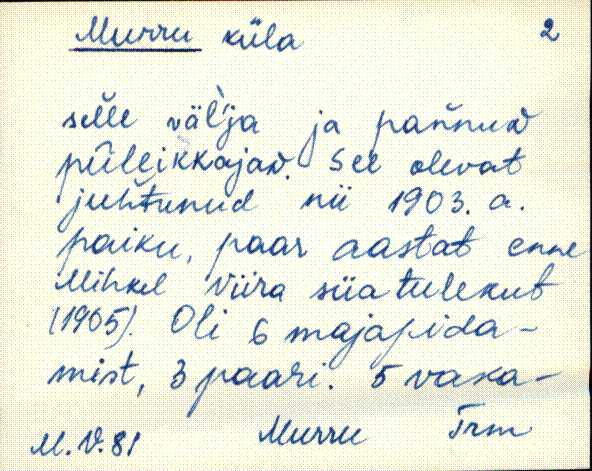 Murru küla 2
selle väl'ja ja pannud
püleikkajad. See olevat
juhtunud nii 1903. a.
paiku, paar aastat enne
Mihkel Viira siia tulekut
(1905). Oli 6 majapida-
mist, 3 paari. 5 vaka-
M.V.81 Murru Trm